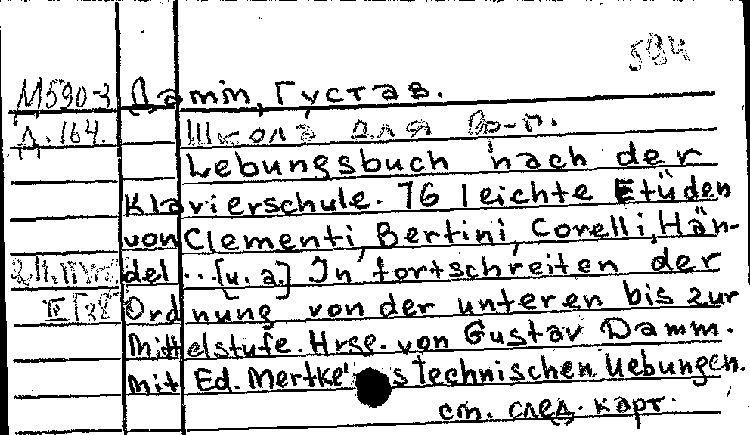 594
М590-3 Дamm, Густав.
Д. 164. Школа для фо-п.
Uebungsbuch nach der
Klavierschule. 76 leichte Etüden
von Clementi, Bertini, Corelli, Hän-
del ... [u. a.] In fortschreiten der
Ordnung von der unteren bis zur
Mittelstufe. Hrsg. von Gustav Damm.
mit Ed. Mertke's technischen Uebungen.
ст. след. карт.